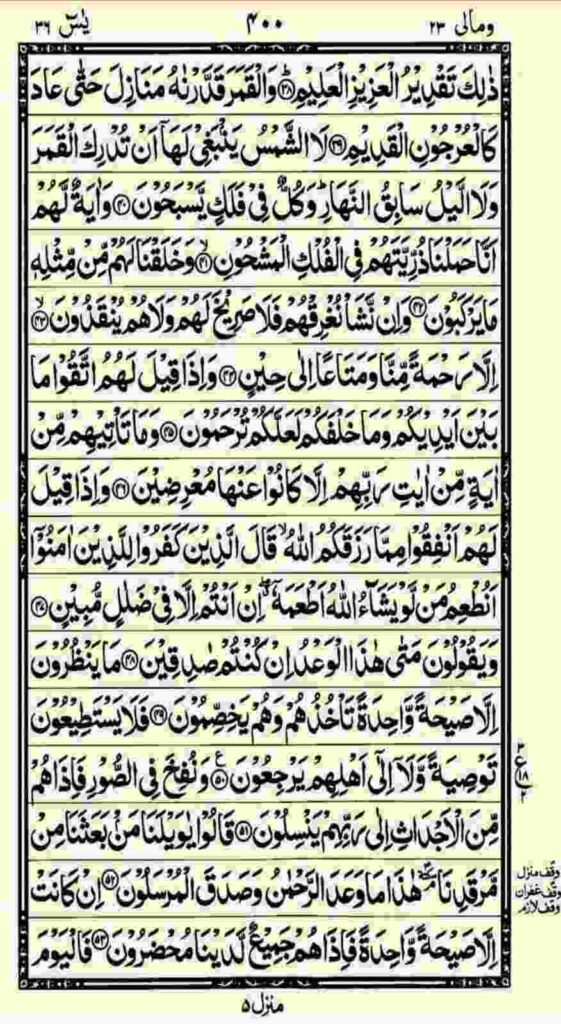 ومالی ٢٣ ۴٠٠ یٰسٓ ٣٦
ذٰلِكَ تَقْدِيْرُ الْعَزِيْزِ الْعَلِيْمِ ﴿٣٨﴾ وَالْقَمَرَ قَدَّرْنٰهُ مَنَازِلَ حَتّٰى عَادَ
كَالْعُرْجُوْنِ الْقَدِيْمِ ﴿٣٩﴾ لَا الشَّمْسُ يَنْۢبَغِيْ لَهَاۤ اَنْ تُدْرِكَ الْقَمَرَ
وَلَا الَّيْلُ سَابِقُ النَّهَارِ ؕ وَكُلٌّ فِيْ فَلَكٍ يَّسْبَحُوْنَ ﴿٤٠﴾ وَاٰيَةٌ لَّهُمْ
اَنَّا حَمَلْنَا ذُرِّيَّتَهُمْ فِي الْفُلْكِ الْمَشْحُوْنِ ﴿٤١﴾ۙ وَخَلَقْنَا لَهُمْ مِّنْ مِّثْلِهٖ
مَا يَرْكَبُوْنَ ﴿٤٢﴾ وَاِنْ نَّشَاْ نُغْرِقْهُمْ فَلَا صَرِيْخَ لَهُمْ وَلَا هُمْ يُنْقَذُوْنَ ﴿٤٣﴾ۙ
اِلَّا رَحْمَةً مِّنَّا وَمَتَاعًا اِلٰى حِيْنٍ ﴿٤٤﴾ وَاِذَا قِيْلَ لَهُمُ اتَّقُوْا مَا
بَيْنَ اَيْدِيْكُمْ وَمَا خَلْفَكُمْ لَعَلَّكُمْ تُرْحَمُوْنَ ﴿٤٥﴾ وَمَا تَاْتِيْهِمْ مِّنْ
اٰيَةٍ مِّنْ اٰيٰتِ رَبِّهِمْ اِلَّا كَانُوْا عَنْهَا مُعْرِضِيْنَ ﴿٤٦﴾ وَاِذَا قِيْلَ
لَهُمْ اَنْفِقُوْا مِمَّا رَزَقَكُمُ اللّٰهُ ۙ قَالَ الَّذِيْنَ كَفَرُوْا لِلَّذِيْنَ اٰمَنُوْۤا
اَنُطْعِمُ مَنْ لَّوْ يَشَآءُ اللّٰهُ اَطْعَمَهٗۤ ۖ اِنْ اَنْتُمْ اِلَّا فِيْ ضَلٰلٍ مُّبِيْنٍ ﴿٤٧﴾
وَيَقُوْلُوْنَ مَتٰى هٰذَا الْوَعْدُ اِنْ كُنْتُمْ صٰدِقِيْنَ ﴿٤٨﴾ مَا يَنْظُرُوْنَ
اِلَّا صَيْحَةً وَّاحِدَةً تَاْخُذُهُمْ وَهُمْ يَخِصِّمُوْنَ ﴿٤٩﴾ فَلَا يَسْتَطِيْعُوْنَ
تَوْصِيَةً وَّلَاۤ اِلٰۤى اَهْلِهِمْ يَرْجِعُوْنَ ﴿٥٠﴾ ع وَنُفِخَ فِي الصُّوْرِ فَاِذَا هُمْ
٣ ع ١٨ ٢
مِّنَ الْاَجْدَاثِ اِلٰى رَبِّهِمْ يَنْسِلُوْنَ ﴿٥١﴾ قَالُوْا يٰوَيْلَنَا مَنْۢ بَعَثَنَا مِنْ
مَّرْقَدِنَا ۘ هٰذَا مَا وَعَدَ الرَّحْمٰنُ وَصَدَقَ الْمُرْسَلُوْنَ ﴿٥٢﴾ اِنْ كَانَتْ
وقف منزل
وقف غفران
وقف لازم
اِلَّا صَيْحَةً وَّاحِدَةً فَاِذَا هُمْ جَمِيْعٌ لَّدَيْنَا مُحْضَرُوْنَ ﴿٥٣﴾ فَالْيَوْمَ
منزل ۵